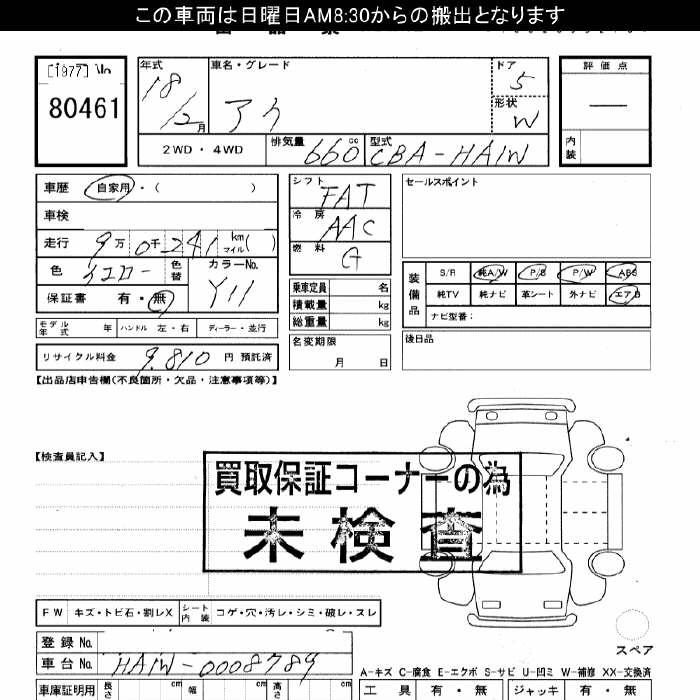 この車両は日曜日AM8:30からの搬出となります
[1977] No
80461
年式 車名・グレード ドア 評価点
18/12月 アイ 5
形状 W
2WD・4WD 排気量 660cc 型式 CBA-HA1W 内装
車歴 自家用・( )
車検
走行 9万0千241km マイル( )
色 イエロー 色替 カラーNo. Y11
保証書 有・無
モデル年式 年 ハンドル 左・右 ディーラー・並行
リサイクル料金 9,810 円 預託済
シフト FAT
冷房 AAC
燃料 G
乗車定員 名
積載量 kg
総重量 kg
名変期限
月 日
セールスポイント
装備品
S/R 純A/W P/S P/W ABS
純TV 純ナビ 革シート 外ナビ エアB
ナビ型番:
後日品
【出品店申告欄(不良箇所・欠品・注意事項等)】
【検査員記入】
買取保証コーナーの為
未検査
FW キズ・トビ石・割レX シート内装 コゲ・穴・汚レ・シミ・破レ・スレ
スペア
登録 No.
車台 No. HA1W-0008789
A-キズ C-腐食 E-エクボ S-サビ U-凹ミ W-補修 XX-交換済
車庫証明用 長さ cm 幅 cm 高さ cm
工具 有・無 ジャッキ 有・無